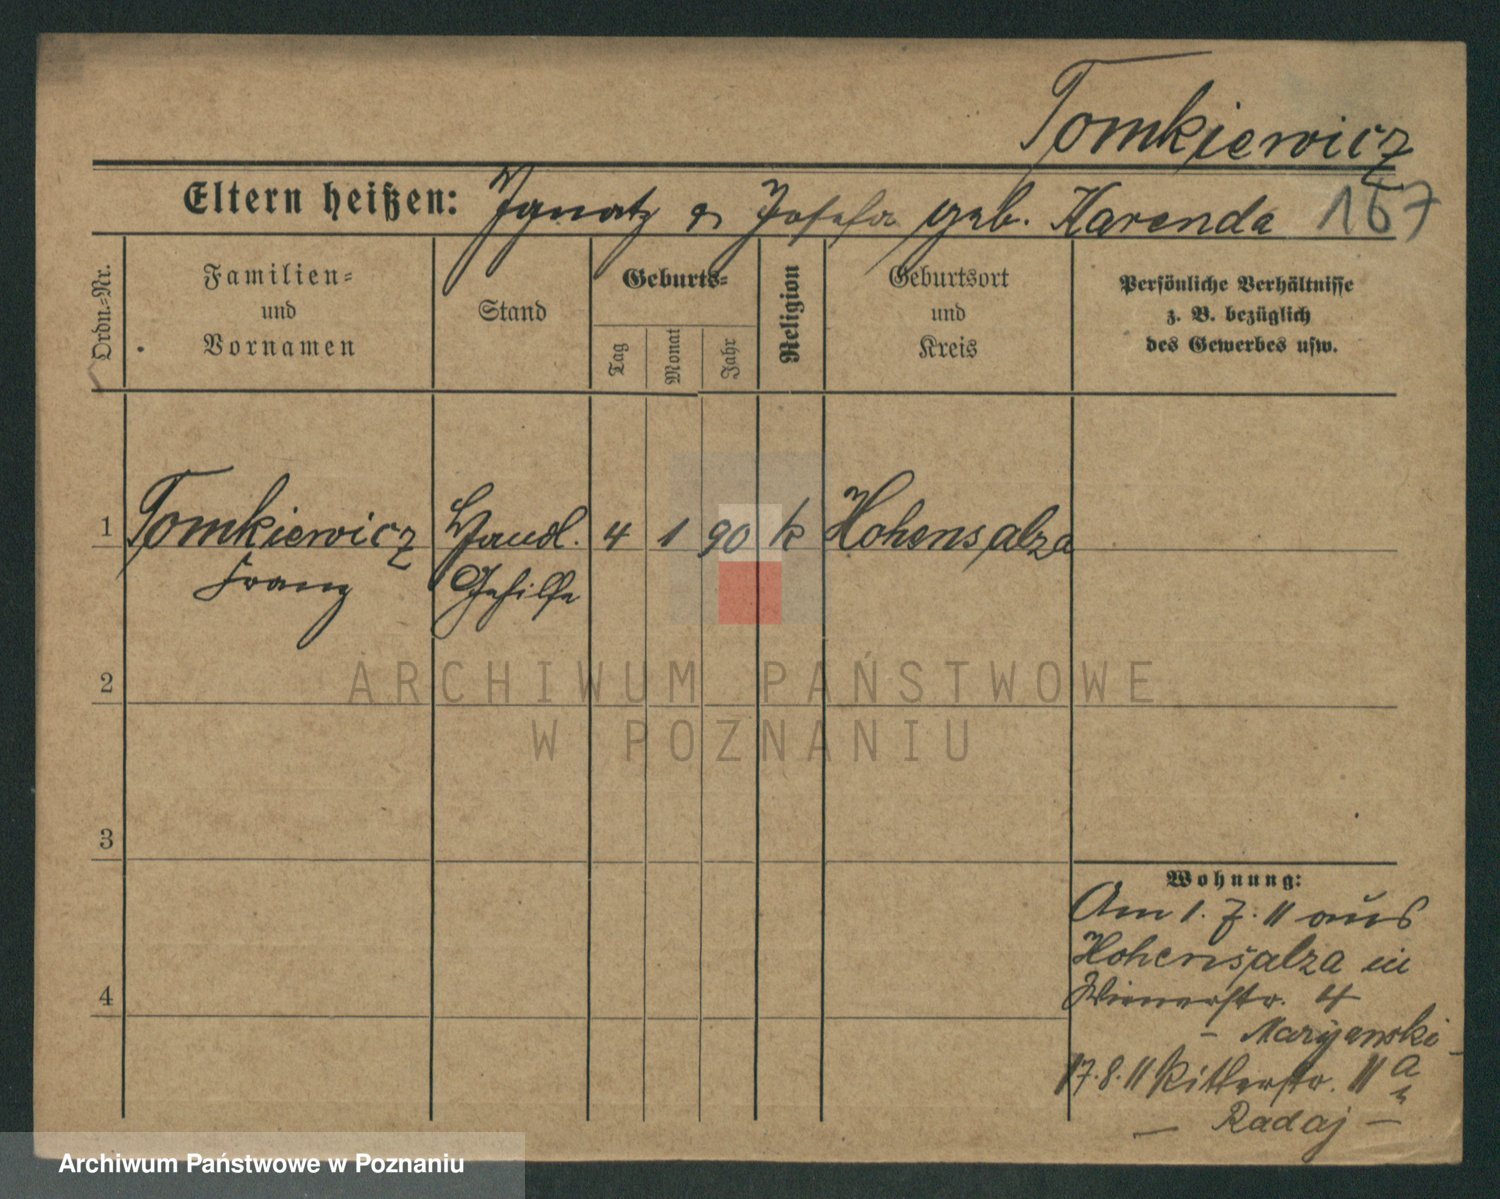 Tomkiewicz
Eltern heißen: Ignatz & Josefa geb. Karenda 167
Ordn.-Nr.
Familien-
und
Vornamen
Stand
Geburts-
Tag
Monat
Jahr
Religion
Geburtsort
und
Kreis
Persönliche Verhältnisse
z. B. bezüglich
des Gewerbes usw.
1 Tomkiewicz Handl. 4 1 90 k Hohensalza
Franz Gehilfe
2
3
4
Wohnung:
Am 1. 7. 11 aus
Hohensalza in
Wienerstr. 4
- Maryanski -
17. 8. 11 Ritterstr. 11 a
- Radaj -
ARCHIWUM PAŃSTWOWE
W POZNANIU
Archiwum Państwowe w Poznaniu